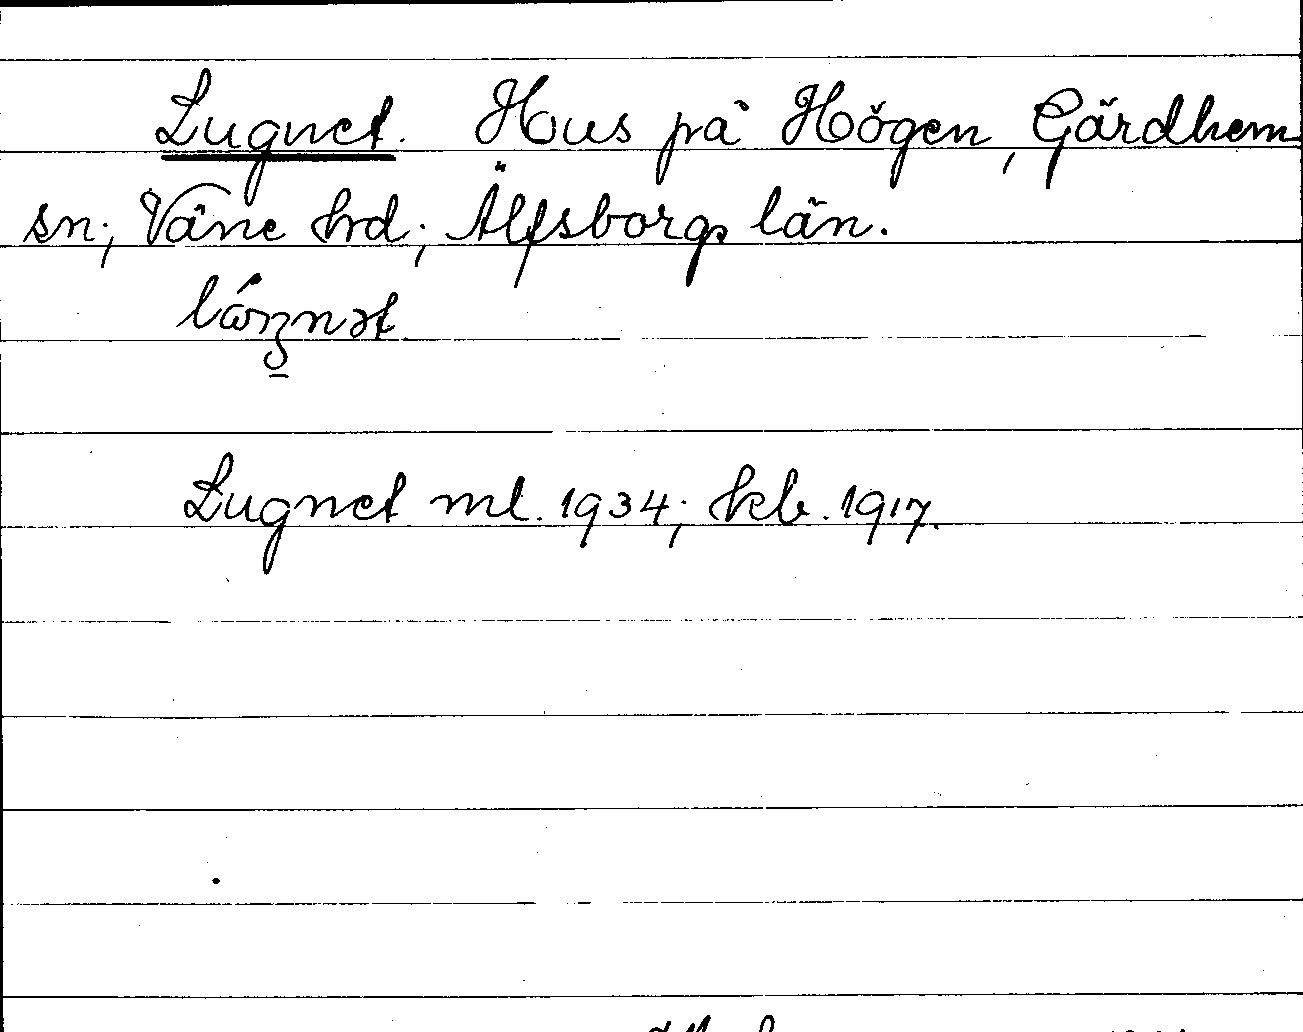 Lugnet. Hus på Högen, Gärdhem
sn; Väne hd; Älfsborgs län.
Lugnet ml. 1934; kb. 1917.